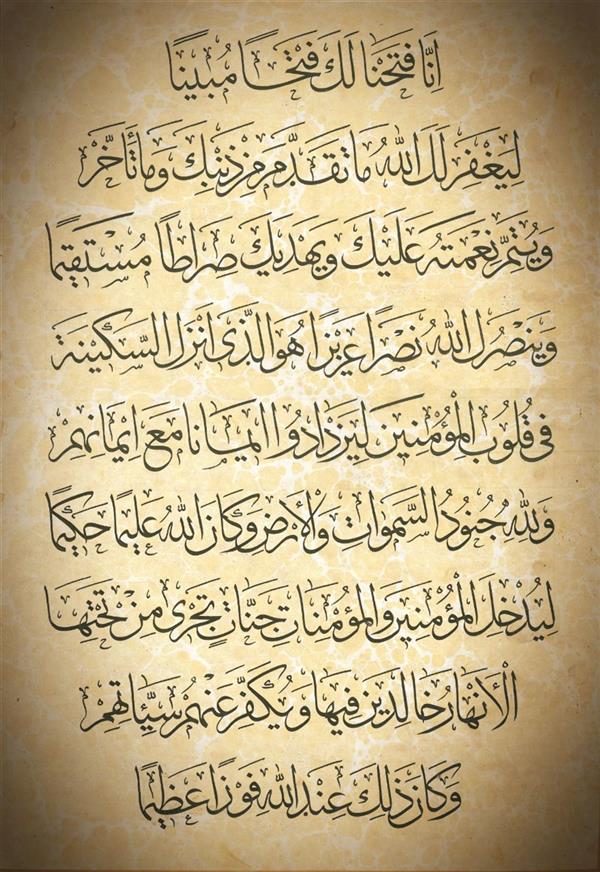 اِنَّا فَتَحْنَا لَكَ فَتْحًا مُبِينًا
لِيَغْفِرَ لَكَ اللّٰهُ مَا تَقَدَّمَ مِنْ ذَنْبِكَ وَمَا تَأَخَّرَ
وَيُتِمَّ نِعْمَتَهُ عَلَيْكَ وَيَهْدِيَكَ صِرَاطًا مُسْتَقِيمًا
وَيَنْصُرَكَ اللّٰهُ نَصْرًا عَزِيزًا هُوَ الَّذِى اَنْزَلَ السَّكِينَةَ
فِى قُلُوبِ الْمُؤْمِنِينَ لِيَزْدَادُوا اِيمَانًا مَعَ اِيمَانِهِمْ
وَلِلّٰهِ جُنُودُ السَّمٰوَاتِ وَالْاَرْضِ وَكَانَ اللّٰهُ عَلِيمًا حَكِيمًا
لِيُدْخِلَ الْمُؤْمِنِينَ وَالْمُؤْمِنَاتِ جَنَّاتٍ تَجْرِى مِنْ تَحْتِهَا
الْاَنْهَارُ خَالِدِينَ فِيهَا وَيُكَفِّرَ عَنْهُمْ سَيِّاٰتِهِمْ
وَكَانَ ذٰلِكَ عِنْدَ اللّٰهِ فَوْزًا عَظِيمًا